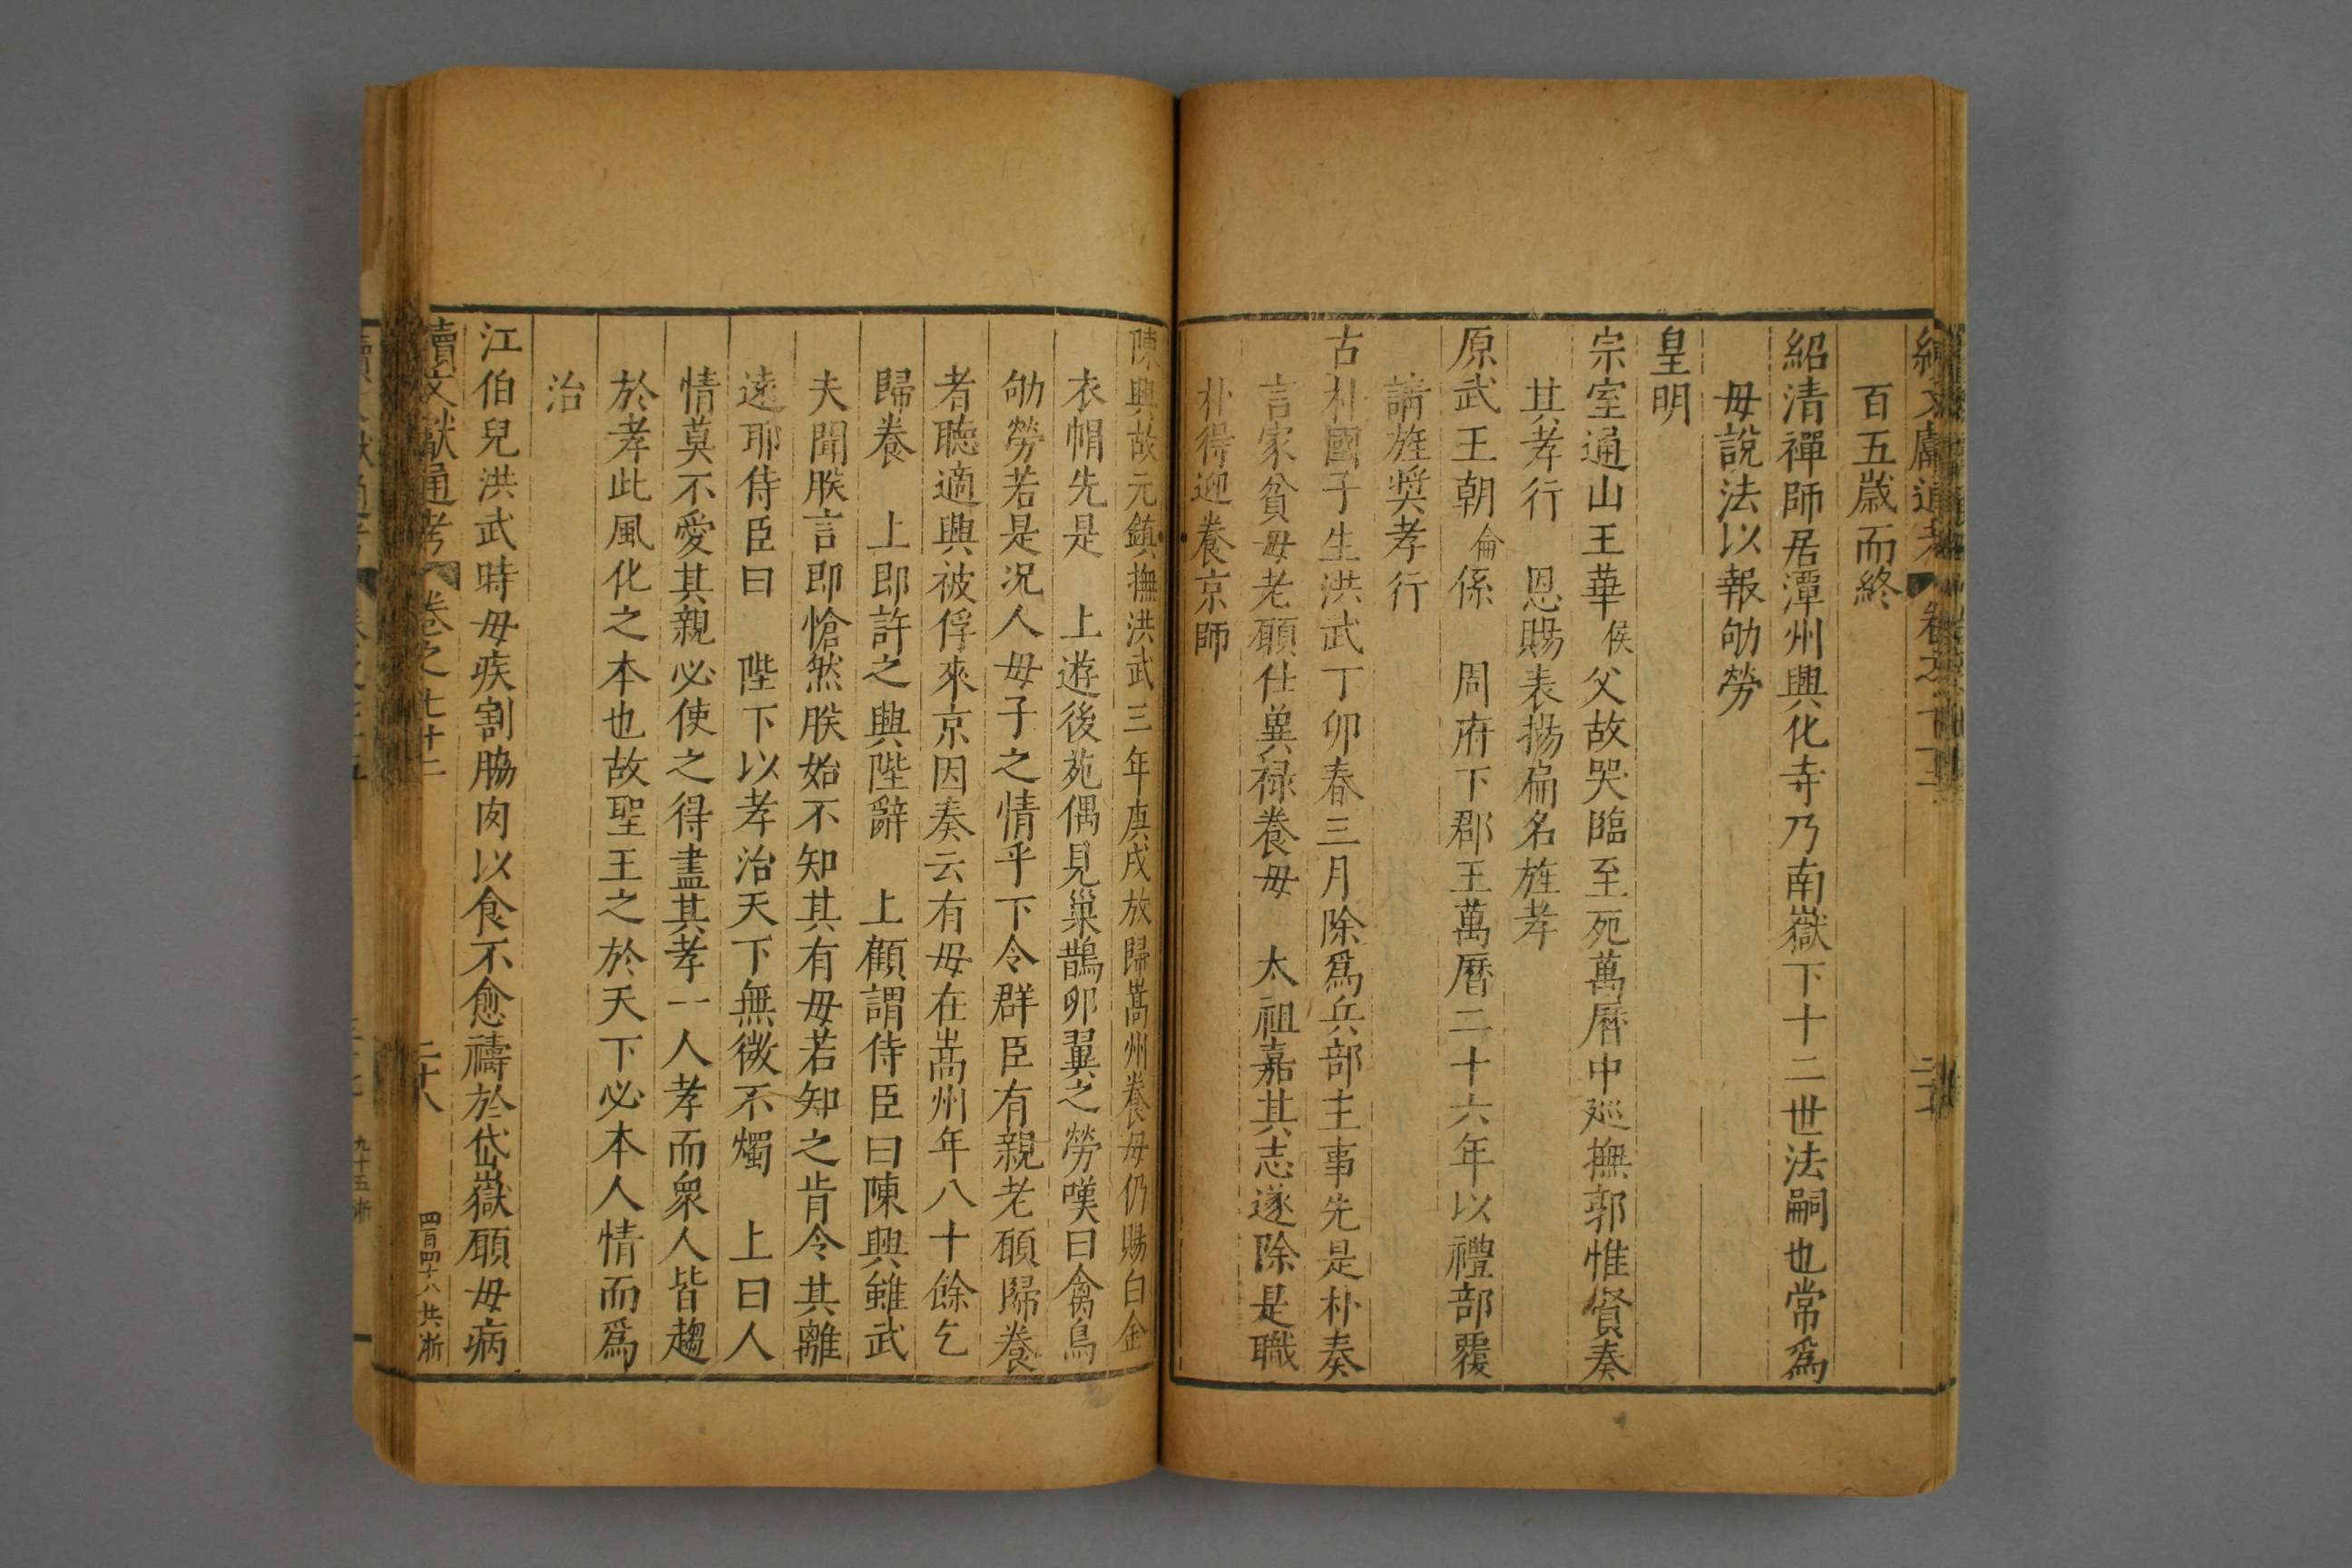 續文獻通考 卷之七十二 二十七
百五歲而終
紹清禪師居潭州興化寺乃南嶽下十二世法嗣也常爲
毋說法以報劬勞
皇明
宗室通山王華㷞父故哭臨至死萬曆中廵撫郭惟賢奏
其孝行 恩賜表揚扁名旌孝
原武王朝倫係 周府下郡王萬曆二十六年以禮部覆
請旌奬孝行
古朴國子生洪武丁卯春三月除爲兵部主事先是朴奏
言家貧毋老願仕兾祿養毋 太祖嘉其志遂除是職
朴得迎養京師
陳興故元鎮撫洪武三年庚戌放歸嵩州養毋仍賜白金
衣帽先是 上遊後苑偶見巢鵲卵翼之勞嘆曰禽鳥
劬勞若是况人毋子之情乎下令群臣有親老願歸養
者聴適興被俘來京因奏云有毋在嵩州年八十餘乞
歸養 上即許之興陛辭 上顧謂侍臣曰陳興雖武
夫聞朕言即愴然朕始不知其有毋若知之肯令其離
遠耶侍臣曰 陛下以孝治天下無微不燭 上曰人
情莫不愛其親必使之得盡其孝一人孝而衆人皆趨
於孝此風化之本也故聖王之於天下必本人情而爲
治
江伯兒洪武時毋疾割脇肉以食不愈禱於岱嶽願毋病
續文獻通考 卷之七十二 二十八 四百四十八 共浙
九十五浙